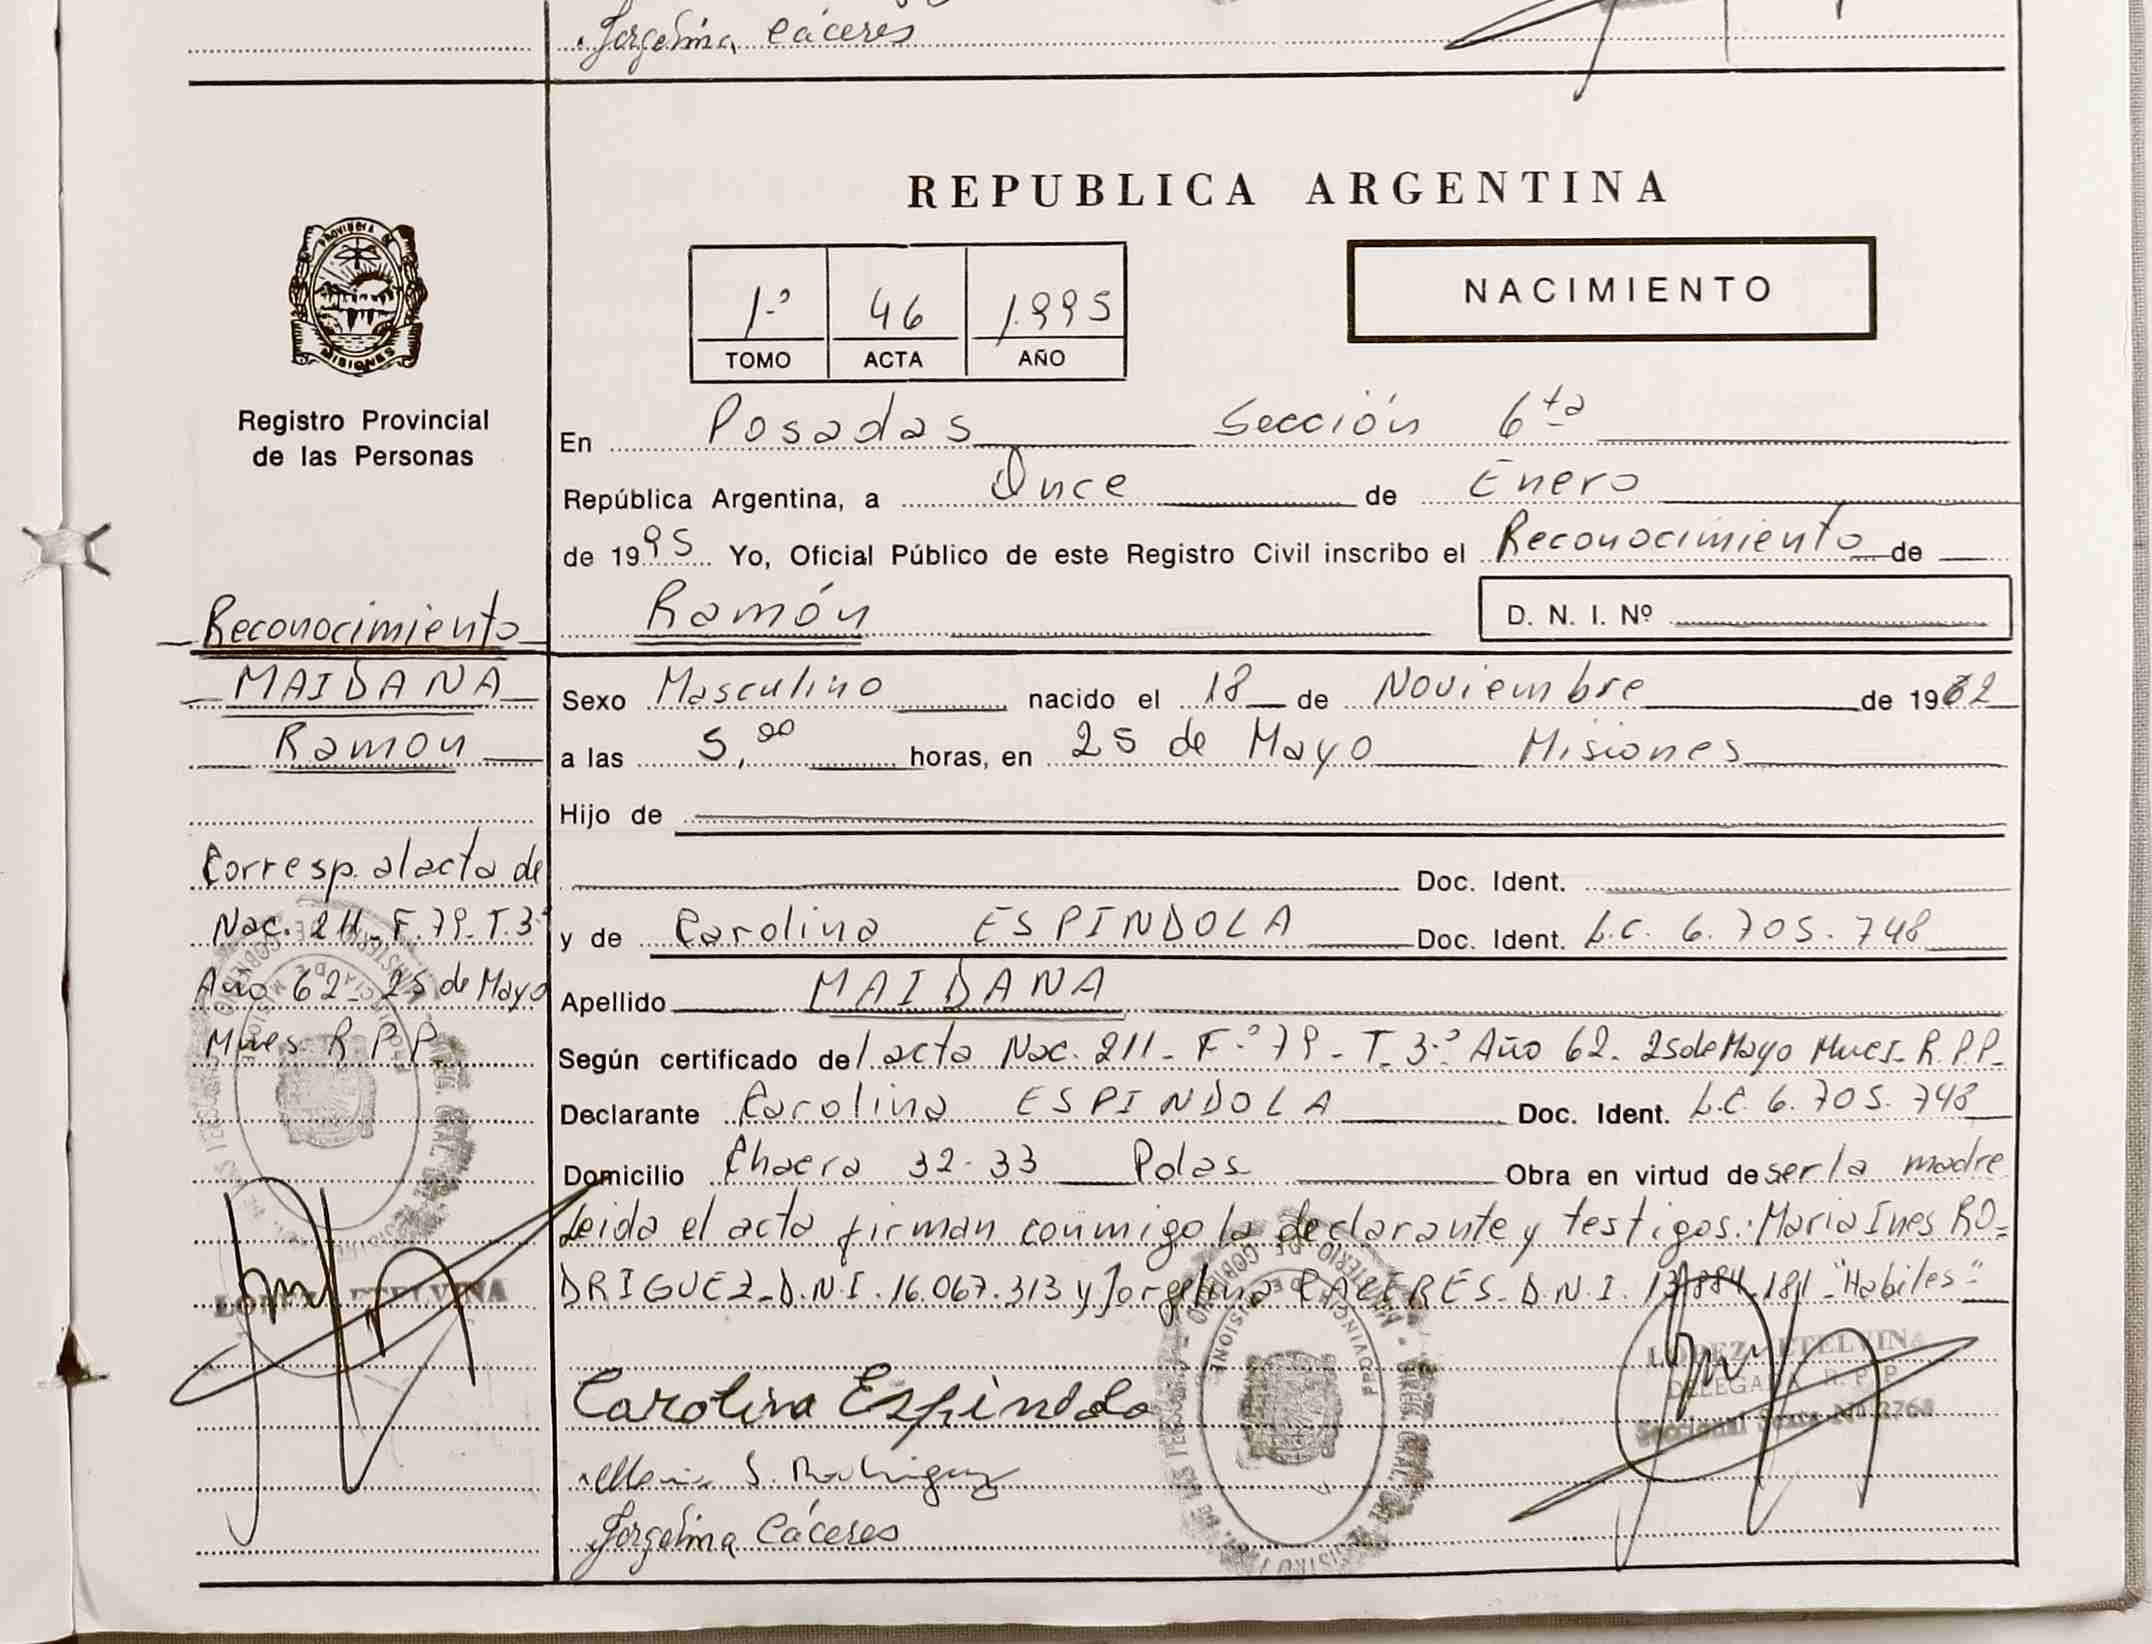 Jorgelina Cáceres
REPUBLICA ARGENTINA
PROVINCIA DE
MISIONES
1º 46 1.995
TOMO ACTA AÑO
NACIMIENTO
Registro Provincial
de las Personas
En Posadas Sección 6ta
República Argentina, a Once de Enero
de 1995 Yo, Oficial Público de este Registro Civil inscribo el Reconocimiento de
Ramón D. N. I. Nº
Reconocimiento
MAIDANA
Ramon
Sexo Masculino nacido el 18 de Noviembre de 1962
a las 5,00 horas, en 25 de Mayo Misiones
Hijo de
Doc. Ident.
Corresp. al acta de
Nac. 211 - F. 79 - T. 3º
Año 62 - 25 de Mayo
Mnes R.P.P.
y de Carolina ESPINDOLA Doc. Ident. L.C. 6.705.748
Apellido MAIDANA
Según certificado del acta Nac. 211 - Fº 79 - T. 3º Año 62 - 25 de Mayo Mnes - R.P.P.
Declarante Carolina ESPINDOLA Doc. Ident. L.C. 6.705.748
Domicilio Chacra 32-33 Pdas Obra en virtud de ser la madre
Leida el acta firman conmigo la declarante y testigos: Maria Ines RO-
DRIGUEZ - D.N.I. 16.067.313 y Jorgelina CACERES - D.N.I. 13.884.181 - "Habiles"
LOPEZ ETELVINA
Carolina Espindola
Maria I. Rodriguez
Jorgelina Cáceres
LOPEZ ETELVINA
DELEGADA R.P.P.
Seccional Sexta